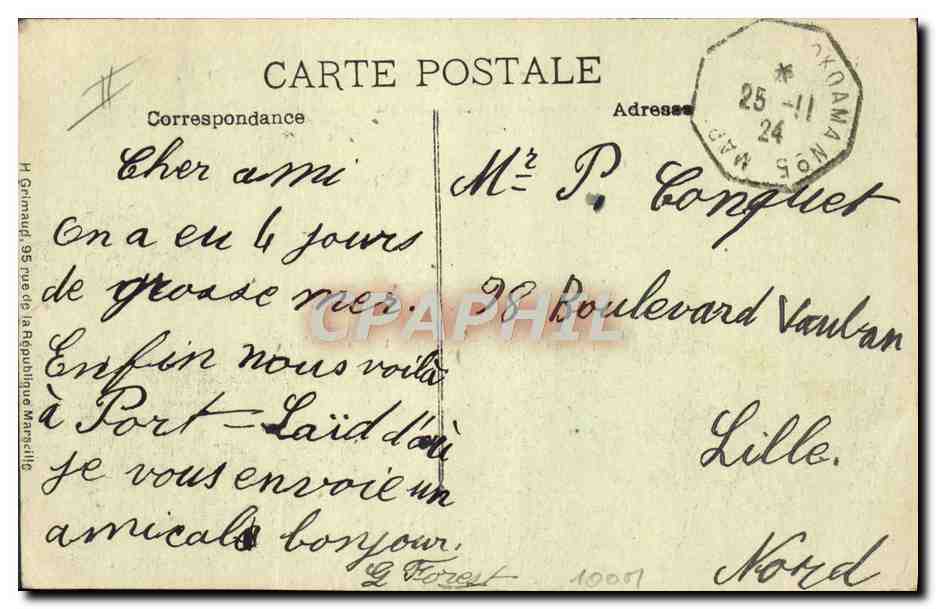 CARTE POSTALE
Correspondance
Adresse
25 -11
24
Cher ami
On a eu 4 jours
de grosse mer.
Enfin nous voilà
à Port-Saïd d'où
je vous envoie un
amical bonjour.
G Forest
Mr P. Conquet
98 Boulevard Vauban
Lille.
Nord
H Grimaud, 95 rue de la République Marseille
CPAPHIL